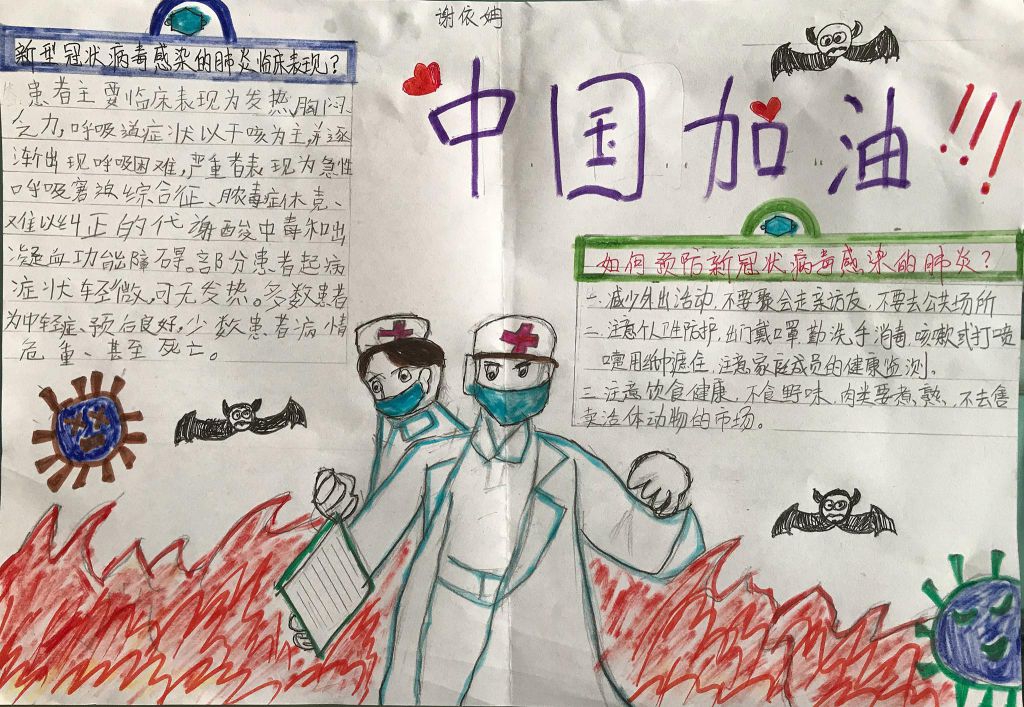 谢依姗
中国加油!!!
新型冠状病毒感染的肺炎临床表现?
患者主要临床表现为发热,胸闷
乏力,呼吸道症状以干咳为主,并逐
渐出现呼吸困难,严重者表现为急性
呼吸窘迫综合征、脓毒症休克、
难以纠正的代谢酸中毒和出
凝血功能障碍。部分患者起病
症状轻微,可无发热。多数患者
为中轻症、预后良好,少数患者病情
危重、甚至死亡。
如何预防新冠状病毒感染的肺炎?
一.减少外出活动,不要聚会走亲访友,不要去公共场所
二.注意个人卫生防护,出门戴口罩,勤洗手消毒,咳嗽或打喷
嚏用纸巾遮住,注意家庭成员的健康监测。
三.注意饮食健康,不食野味,肉类要煮熟,不去售
卖活体动物的市场。